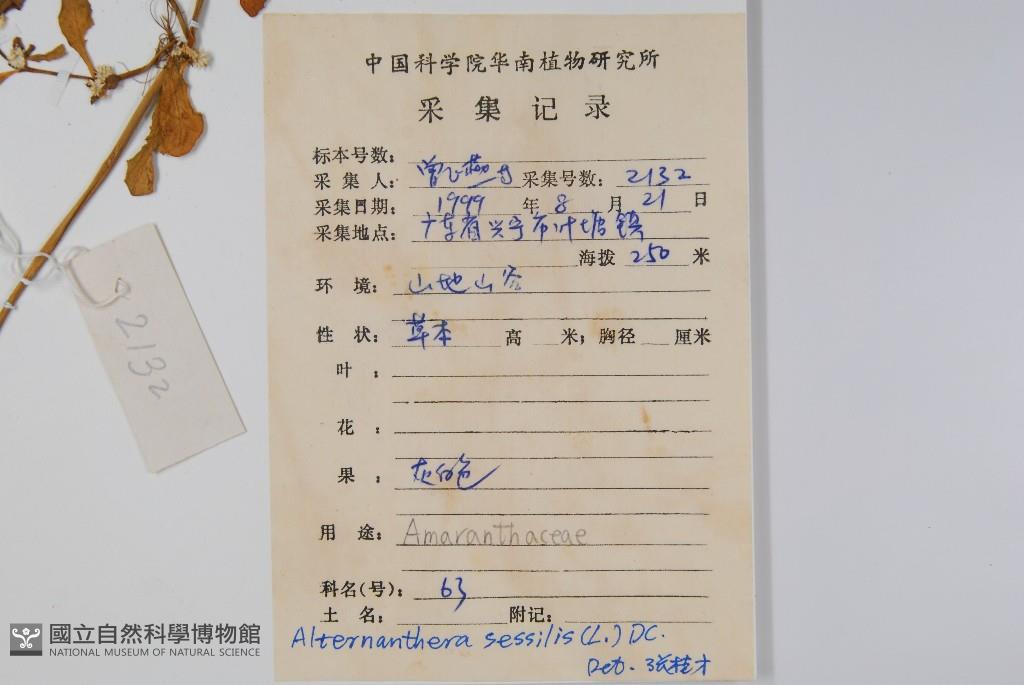 中国科学院华南植物研究所
采集记录
标本号数：
采集人： 曾飞燕等 采集号数： 2132
采集日期： 1999 年 8 月 21 日
采集地点： 广东省兴宁市叶塘镇
海拨 250 米
环境： 山地山谷
性状： 草本 高 米；胸径 厘米
叶：
花：
果： 灰白色
用途： Amaranthaceae
科名(号)： 63
土名： 附记：
Alternanthera sessilis (L.) DC.
Det. 张桂才
2132
國立自然科學博物館
NATIONAL MUSEUM OF NATURAL SCIENCE